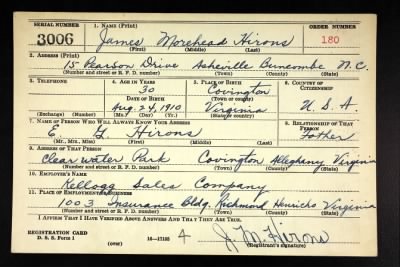 SERIAL NUMBER 1. NAME (Print) ORDER NUMBER
3006 James Morehead Hirons 180
(First) (Middle) (Last)
2. ADDRESS (Print)
15 Pearson Drive Asheville Buncombe N.C.
(Number and street or R. F. D. number) (Town) (County) (State)
3. TELEPHONE 4. AGE IN YEARS 5. PLACE OF BIRTH 6. COUNTRY OF CITIZENSHIP
30 Covington
DATE OF BIRTH (Town or county)
Aug. 24, 1910 Virginia U.S.A.
(Exchange) (Number) (Mo.) (Day) (Yr.) (State or country)
7. NAME OF PERSON WHO WILL ALWAYS KNOW YOUR ADDRESS 8. RELATIONSHIP OF THAT PERSON
E. G. Hirons Father
(Mr., Mrs., Miss) (First) (Middle) (Last)
9. ADDRESS OF THAT PERSON
Clearwater Park Covington Alleghany Virginia
(Number and street or R. F. D. number) (Town) (County) (State)
10. EMPLOYER'S NAME
Kellogg Sales Company
11. PLACE OF EMPLOYMENT OR BUSINESS
1003 Insurance Bldg. Richmond Henrico Virginia
(Number and street or R. F. D. number) (Town) (County) (State)
I AFFIRM THAT I HAVE VERIFIED ABOVE ANSWERS AND THAT THEY ARE TRUE.
REGISTRATION CARD
D. S. S. Form 1 (over) 16—17105 4 J. M. Hirons
(Registrant's signature)